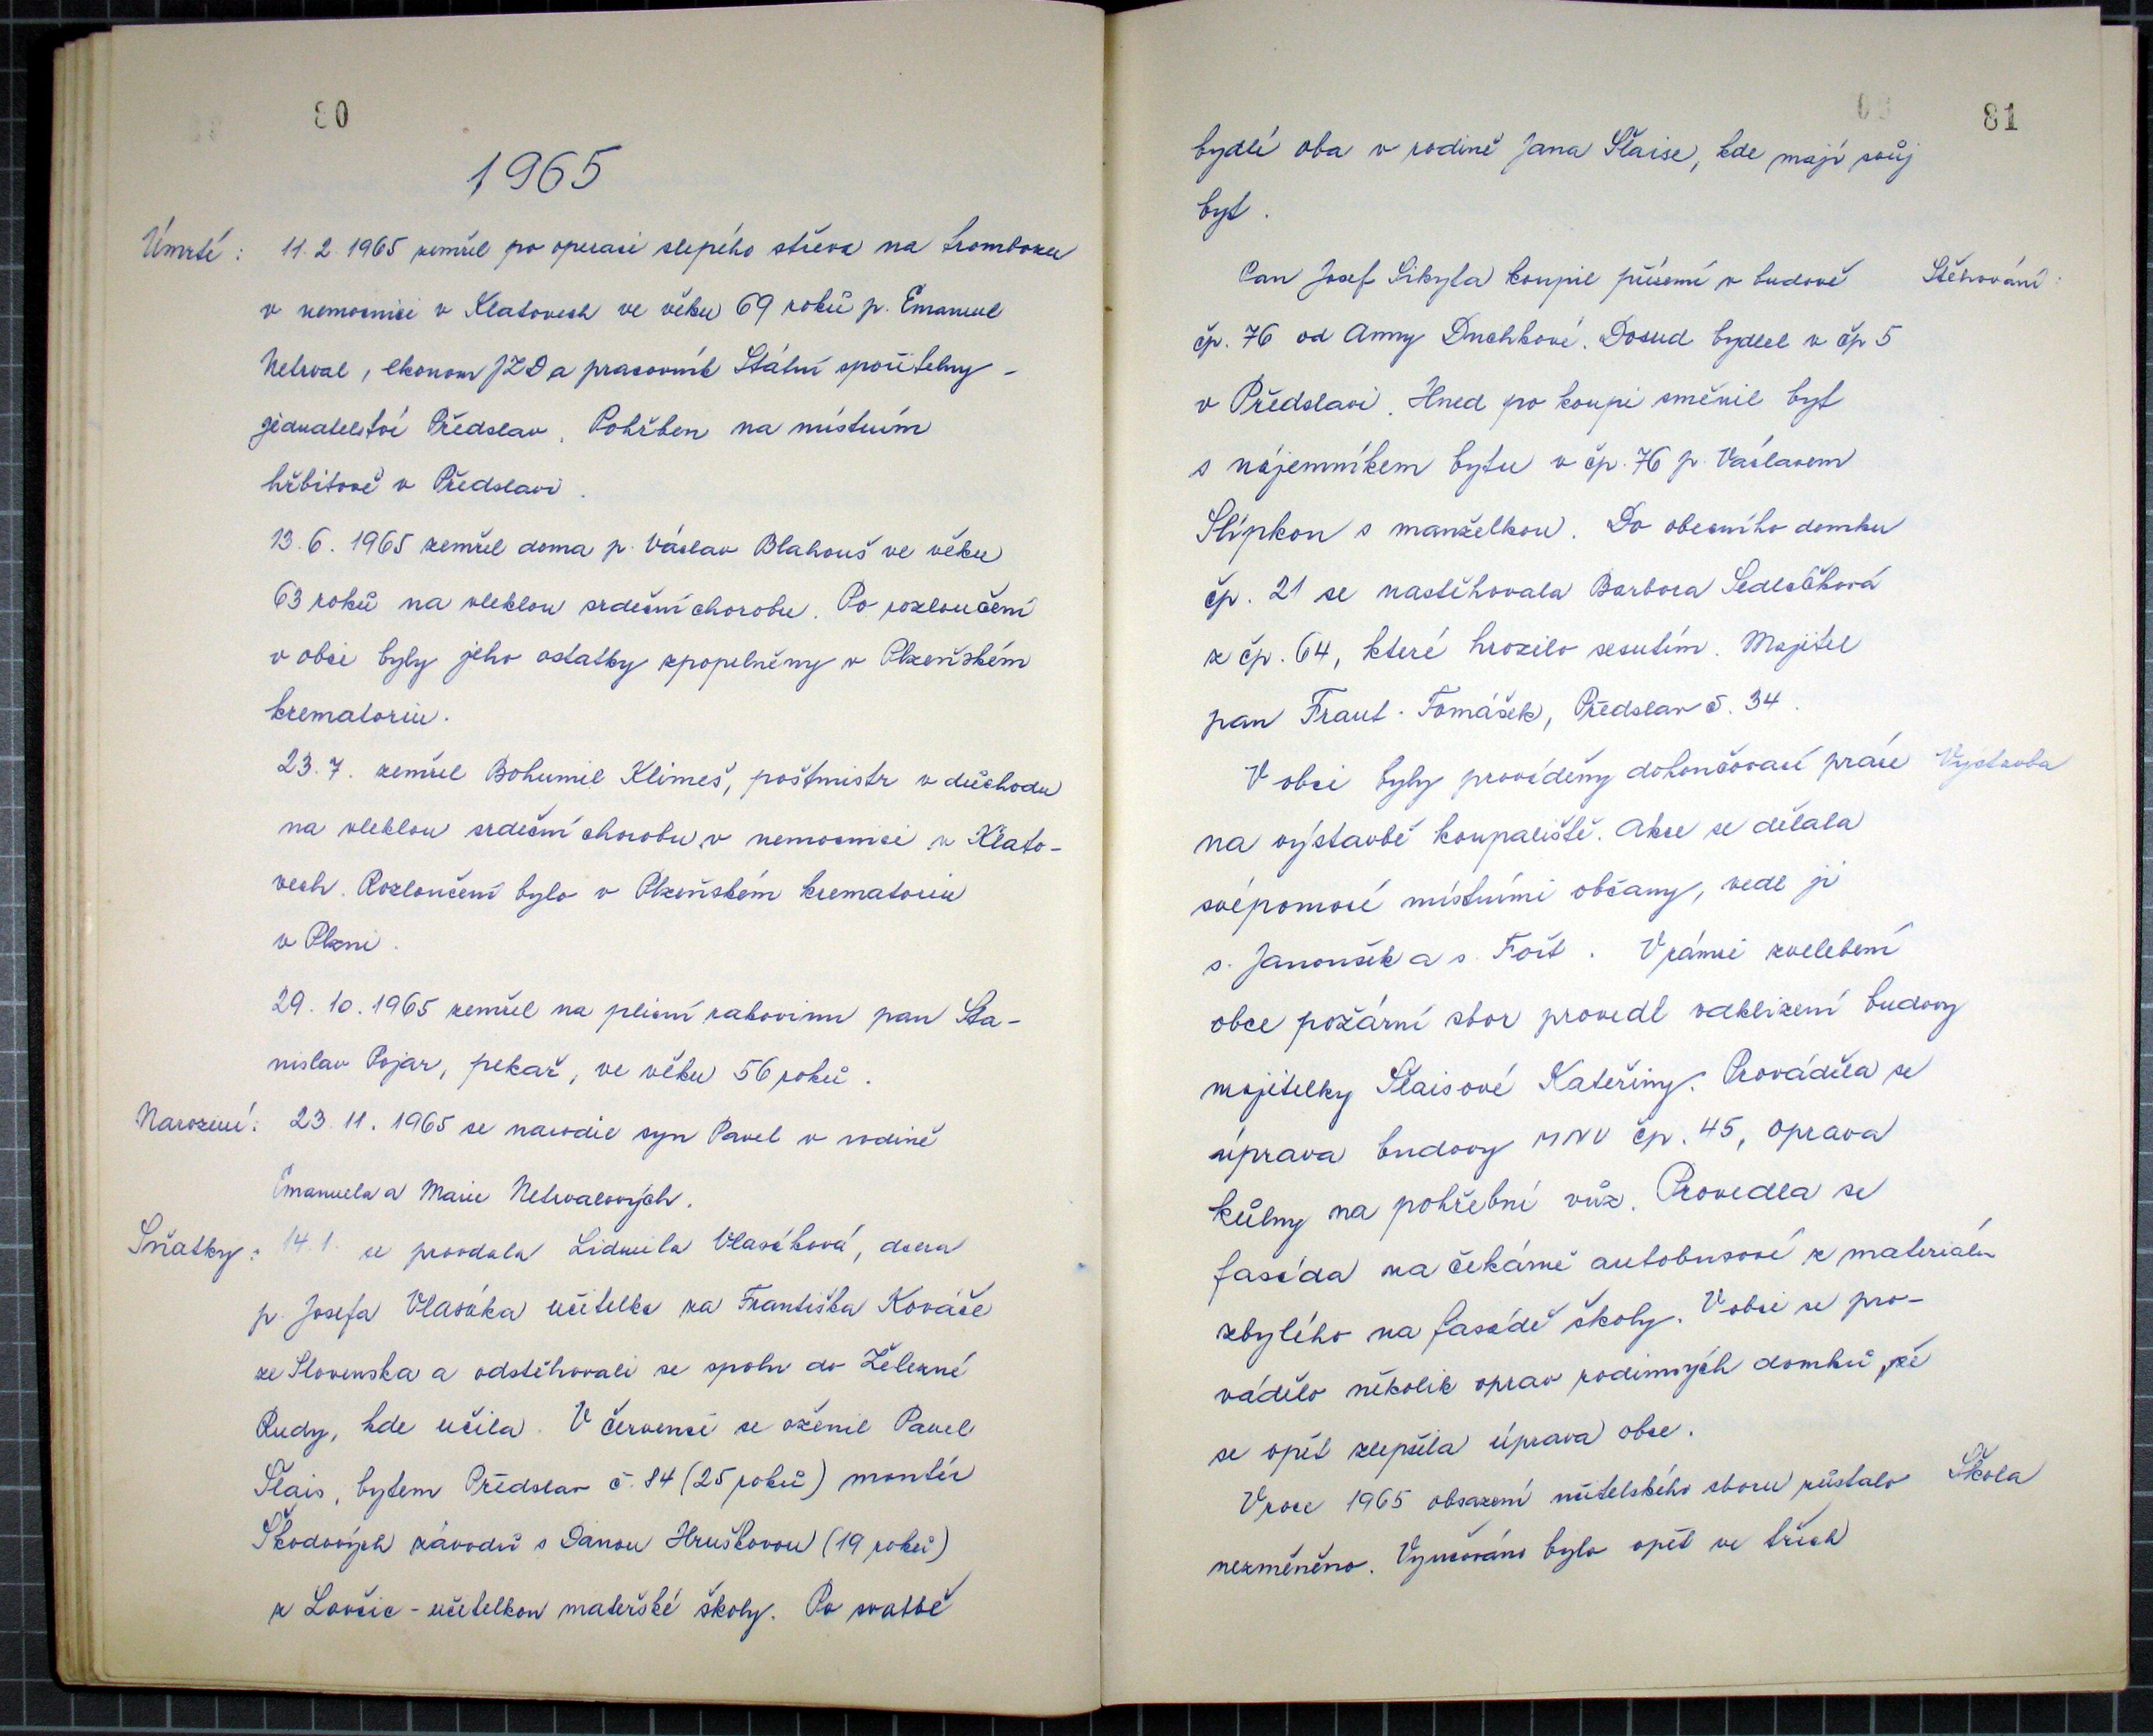 80
1965
Úmrtí: 11. 2. 1965 zemřel po operaci slepého střeva na trombozu
v nemocnici v Klatovech ve věku 69 roků p. Emanuel
Netrval, ekonom JZD a pracovník Státní spořitelny -
jednatelství Předslav. Pohřben na místním
hřbitově v Předslavi.
13. 6. 1965 zemřel doma p. Václav Blahouš ve věku
63 roků na vleklou srdeční chorobu. Po rozloučení
v obci byly jeho ostatky zpopelněny v Plzeňském
krematoriu.
23. 7. zemřel Bohumil Klimeš, poštmistr v důchodu
na vleklou srdeční chorobu v nemocnici v Klato-
vech. Rozloučení bylo v Plzeňském krematoriu
v Plzni.
29. 10. 1965 zemřel na plicní rakovinu pan Sta-
nislav Pojar, pekař, ve věku 56 roků.
Narození: 23. 11. 1965 se narodil syn Pavel v rodině
Emanuela a Marie Netrvalových.
Sňatky: 14. 1. se provdala Lidmila Vlasáková, dcera
p. Josefa Vlasáka učitelka za Františka Kováče
ze Slovenska a odstěhovali se spolu do Železné
Rudy, kde učila. V červenci se oženil Pavel
Šlais, bytem Předslav č. 84 (25 roků) montér
Škodových závodů s Danou Hruškovou (19 roků)
z Lovčic - učitelkou mateřské školy. Po svatbě
81
bydlí oba v rodině Jana Šlaise, kde mají svůj
byt.
Pan Josef Sikyta koupil přízemí v budově Stěhování:
čp. 76 od Anny Duchkové. Dosud bydlel v čp 5
v Předslavi. Hned po koupi směnil byt
s nájemníkem bytu v čp. 76 p. Václavem
Slípkou s manželkou. Do obecního domku
čp. 21 se nastěhovala Barbora Sedláčková
z čp. 64, které hrozilo sesutím. Majitel
pan Frant. Tomášek, Předslav č. 34.
V obci byly prováděny dokončovací práce Výstavba
na výstavbě koupaliště. Akce se dělala
svépomocí místními občany, vedl ji
s. Janoušek a s. Fošt. V rámci zvelebení
obce požární sbor provedl odklizení budovy
majitelky Šlaisové Kateřiny. Prováděla se
úprava budovy MNV čp. 45, oprava
kůlny na pohřební vůz. Provedla se
fasáda na čekárně autobusové z materiálu
zbylého na fasádě školy. V obci se pro-
vádělo několik oprav rodinných domků, že
se opět zlepšila úprava obce.
V roce 1965 obsazení učitelského sboru zůstalo Škola
nezměněno. Vyučováno bylo opět ve třech